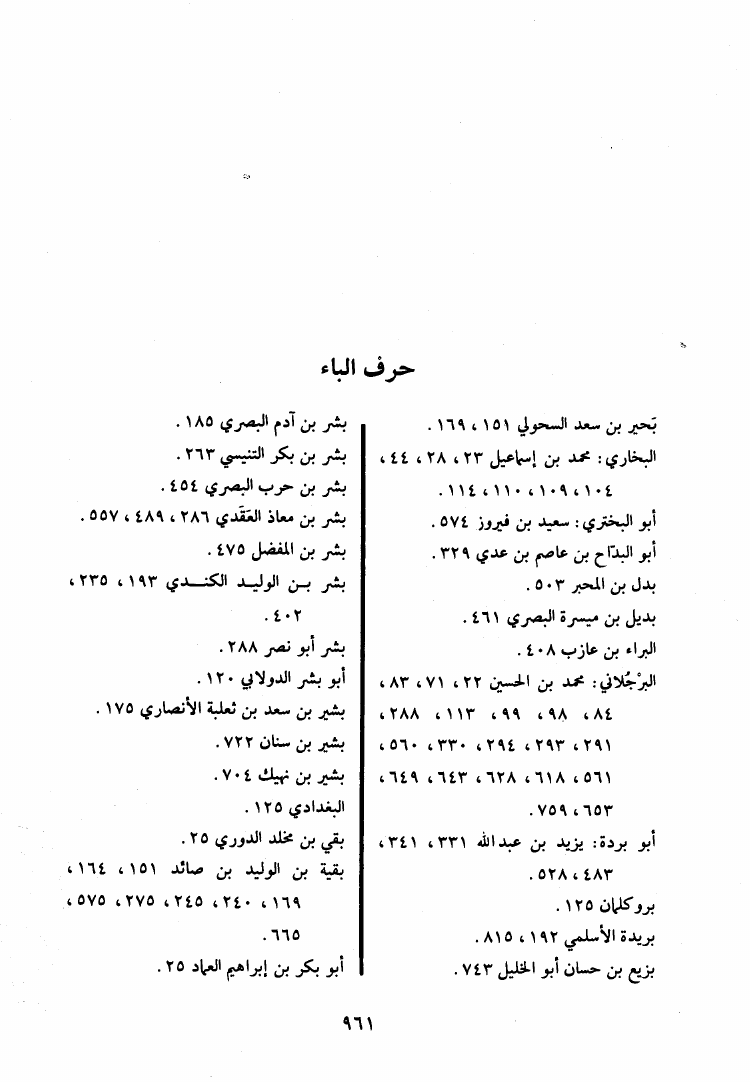 حرف الباء
بَحير بن سعد السحولي ١٥١ ، ١٦٩ .
البخاري : محمد بن إسماعيل ٢٣ ، ٢٨ ، ٤٤ ،
١٠٤ ، ١٠٩ ، ١١٠ ، ١١٤ .
أبو البختري : سعيد بن فيروز ٥٧٤ .
أبو البدّاح بن عاصم بن عدي ٣٢٩ .
بدل بن المحبر ٥٠٣ .
بديل بن ميسرة البصري ٤٦١ .
البراء بن عازب ٤٠٨ .
البرْجُلاني : محمد بن الحسين ٢٢ ، ٧١ ، ٨٣ ،
٨٤ ، ٩٨ ، ٩٩ ، ١١٣ ، ٢٨٨ ،
٢٩١ ، ٢٩٣ ، ٢٩٤ ، ٣٣٠ ، ٥٦٠ ،
٥٦١ ، ٦١٨ ، ٦٢٨ ، ٦٤٣ ، ٦٤٩ ،
٦٥٣ ، ٧٥٩ .
أبو بردة : يزيد بن عبدالله ٣٣١ ، ٣٤١ ،
٤٨٣ ، ٥٢٨ .
بروكلمان ١٢٥ .
بريدة الأسلمي ١٩٢ ، ٨١٥ .
بزيع بن حسان أبو الخليل ٧٤٣ .
بشر بن آدم البصري ١٨٥ .
بشر بن بكر التنيسي ٢٦٣ .
بشر بن حرب البصري ٤٥٤ .
بشر بن معاذ العَقَدي ٢٨٦ ، ٤٨٩ ، ٥٥٧ .
بشر بن المفضل ٤٧٥ .
بشر بن الوليد الكندي ١٩٣ ، ٢٣٥ ،
٤٠٢ .
بشر أبو نصر ٢٨٨ .
أبو بشر الدولابي ١٢٠ .
بشير بن سعد بن ثعلبة الأنصاري ١٧٥ .
بشير بن سنان ٧٢٢ .
بشير بن نهيك ٧٠٤ .
البغدادي ١٢٥ .
بقي بن مخلد الدوري ٢٥ .
بقية بن الوليد بن صائد ١٥١ ، ١٦٤ ،
١٦٩ ، ٢٤٠ ، ٢٤٥ ، ٢٧٥ ، ٥٧٥ ،
٦٦٥ .
أبو بكر بن إبراهيم العماد ٢٥ .
٩٦١